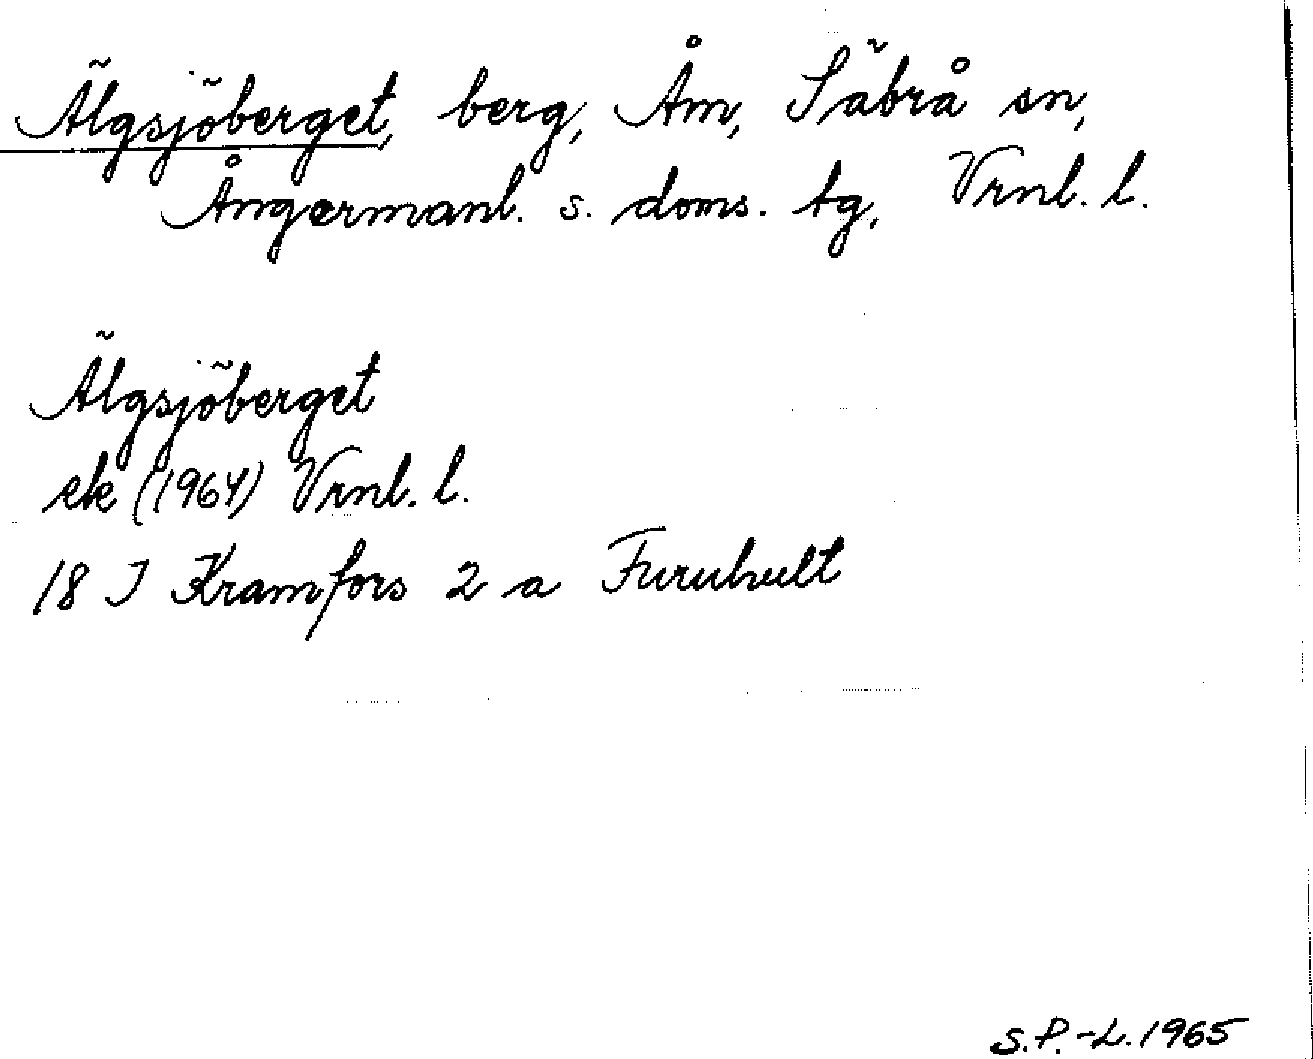 Älgsjöberget, berg, Åm, Säbrå sn,
Ångermanl. s. doms. tg, Vrnl. l.
Älgsjöberget
ek (1964) Vrnl. l.
18 I Kramfors 2 a Furuhult
S.P.-L. 1965